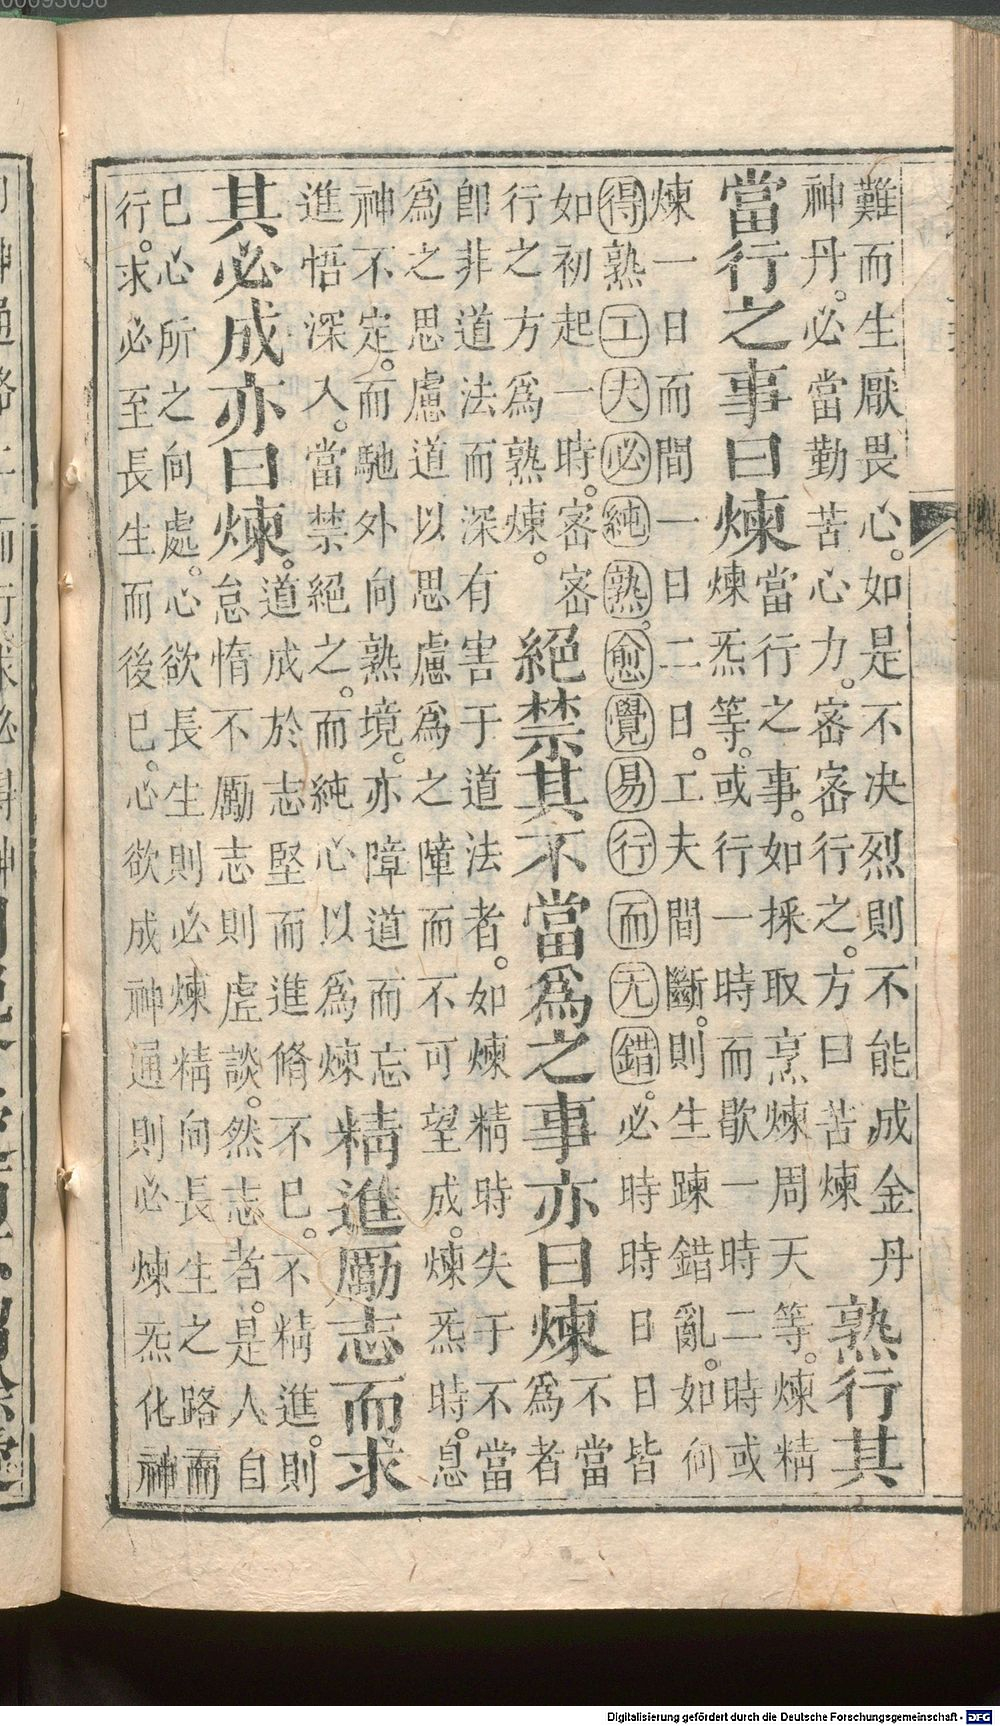 難而生厭畏心。如是不决烈則不能成金丹
神丹。必當勤苦心力。密密行之。方曰苦煉
熟行其
當行之事曰煉
當行之事。如採取烹煉周天等。煉精
煉炁等。或行一時而歇一時二時或
煉一日而間一日二日。工夫間斷。則生踈錯亂。如何
得熟工夫必純熟。愈覺易行而无錯。必時時日日皆
如初起一時。密密
行之方爲熟煉。
絕禁其不當爲之事亦曰煉
不當
爲者
即非道法而深有害于道法者。如煉精時失于不當
爲之思慮道以思慮爲之障而不可望成。煉炁時。息
神不定。而馳外向熟境。亦障道而忘
進悟深入。當禁絕之。而純心以爲煉
精進勵志而求
其必成亦曰煉。
道成於志堅而進脩不已。不精進。則
怠惰不勵志則虛談。然志者。是人自
已心所之向處。心欲長生則必煉精向長生之路而
行。求必至長生而後已。心欲成神通則必煉炁化神
Digitalisierung gefördert durch die Deutsche Forschungsgemeinschaft - DFG